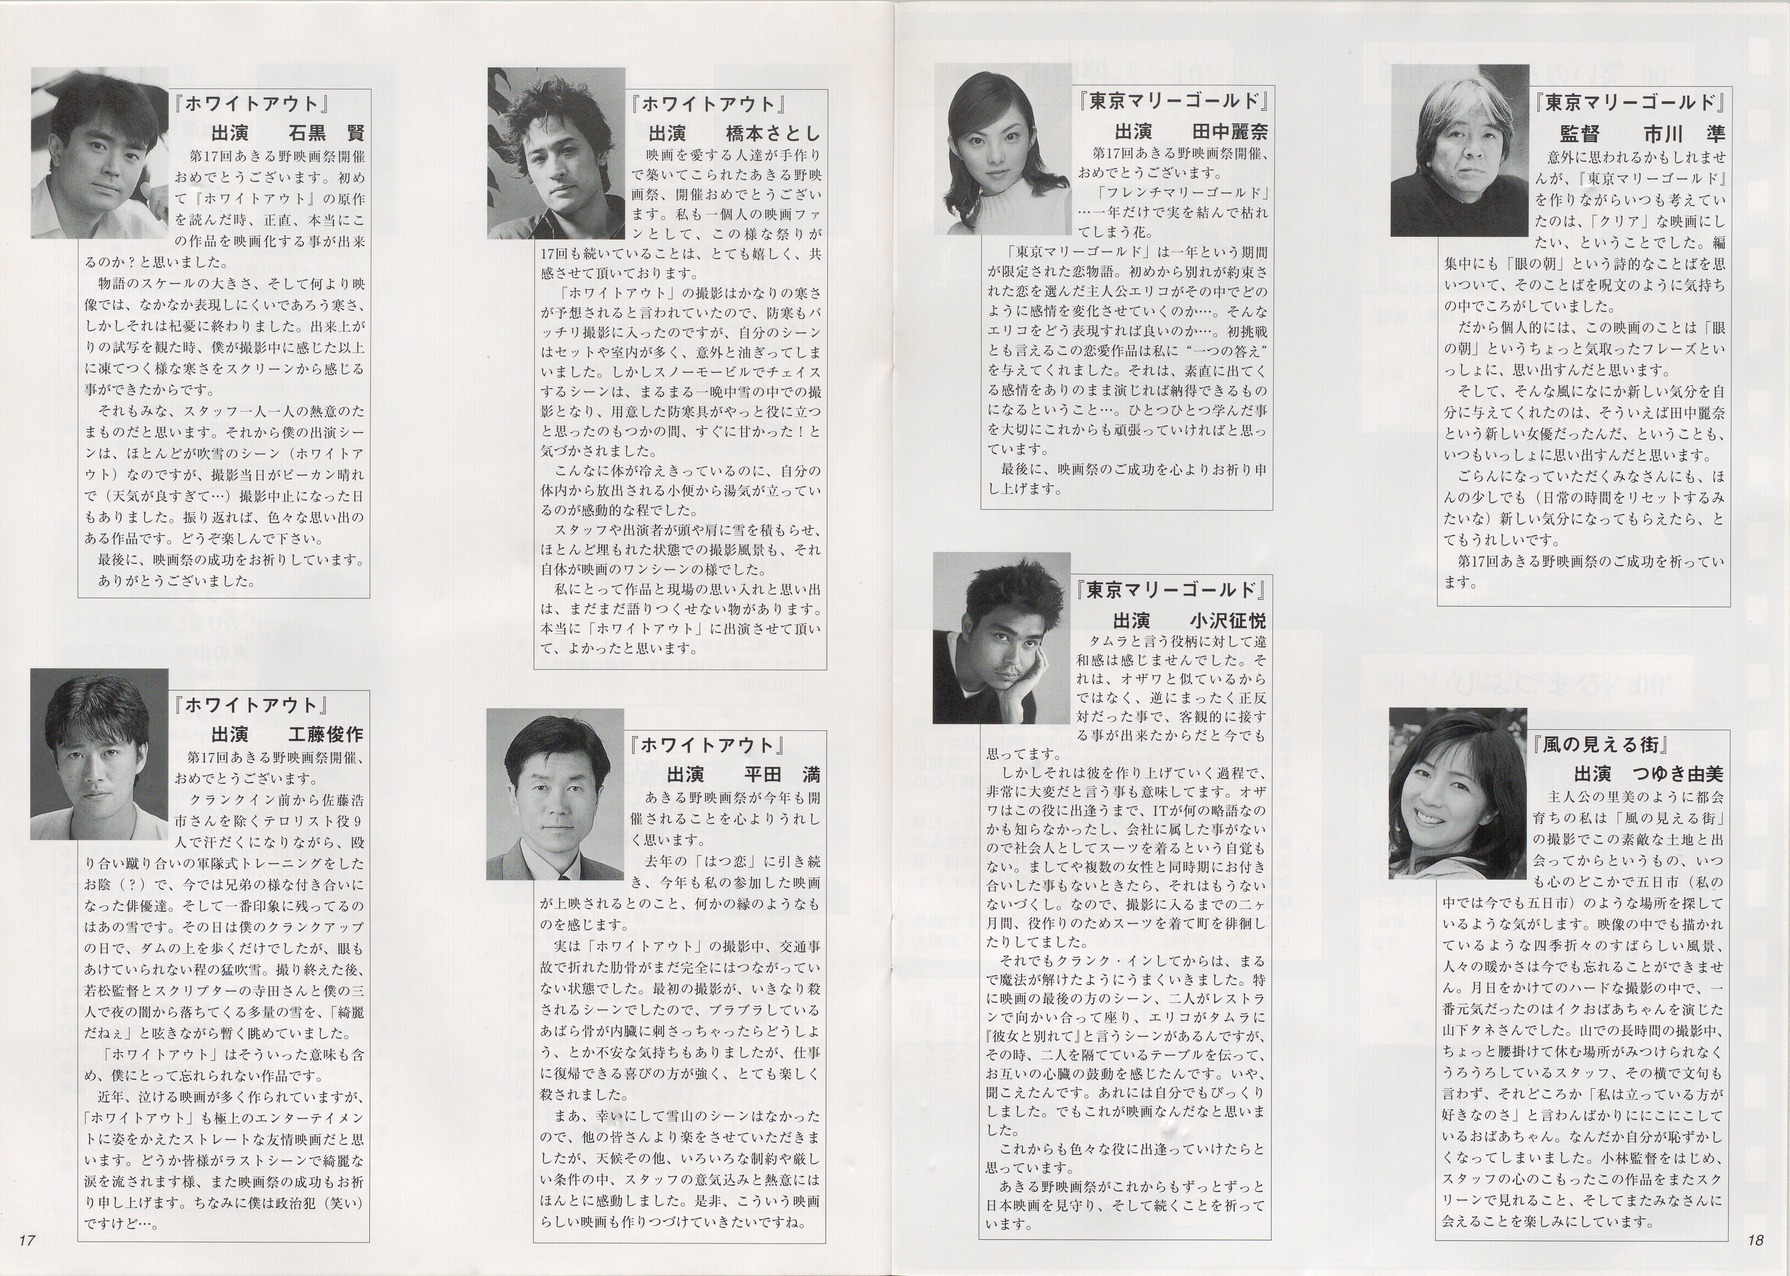 『ホワイトアウト』
出演　石黒　賢
第17回あきる野映画祭開催
おめでとうございます。初め
て『ホワイトアウト』の原作
を読んだ時、正直、本当にこ
の作品を映画化する事が出来
るのか？と思いました。
物語のスケールの大きさ、そして何より映
像では、なかなか表現しにくいであろう寒さ、
しかしそれは杞憂に終わりました。出来上が
りの試写を観た時、僕が撮影中に感じた以上
に凍てつく様な寒さをスクリーンから感じる
事ができたからです。
それもみな、スタッフ一人一人の熱意のた
まものだと思います。それから僕の出演シー
ンは、ほとんどが吹雪のシーン（ホワイトア
ウト）なのですが、撮影当日がピーカン晴れ
で（天気が良すぎて…）撮影中止になった日
もありました。振り返れば、色々な思い出の
ある作品です。どうぞ楽しんで下さい。
最後に、映画祭の成功をお祈りしています。
ありがとうございました。
『ホワイトアウト』
出演　工藤俊作
第17回あきる野映画祭開催、
おめでとうございます。
クランクイン前から佐藤浩
市さんを除くテロリスト役９
人で汗だくになりながら、殴
り合い蹴り合いの軍隊式トレーニングをした
お陰（？）で、今では兄弟の様な付き合いに
なった俳優達。そして一番印象に残ってるの
はあの雪です。その日は僕のクランクアップ
の日で、ダムの上を歩くだけでしたが、眼も
あけていられない程の猛吹雪。撮り終えた後、
若松監督とスクリプターの寺田さんと僕の三
人で夜の闇から落ちてくる多量の雪を、「綺麗
だねぇ」と呟きながら暫く眺めていました。
「ホワイトアウト」はそういった意味も含
め、僕にとって忘れられない作品です。
近年、泣ける映画が多く作られていますが、
「ホワイトアウト」も極上のエンターテイメン
トに姿をかえたストレートな友情映画だと思
います。どうか皆様がラストシーンで綺麗な
涙を流されます様、また映画祭の成功もお祈
り申し上げます。ちなみに僕は政治犯（笑い）
ですけど…。
17
『ホワイトアウト』
出演　橋本さとし
映画を愛する人達が手作り
で築いてこられたあきる野映
画祭、開催おめでとうござい
ます。私も一個人の映画ファ
ンとして、この様な祭りが
17回も続いていることは、とても嬉しく、共
感させて頂いております。
「ホワイトアウト」の撮影はかなりの寒さ
が予想されると言われていたので、防寒もバ
ッチリ撮影に入ったのですが、自分のシーン
はセットや室内が多く、意外と油ぎってしま
いました。しかしスノーモービルでチェイス
するシーンは、まるまる一晩中雪の中での撮
影となり、用意した防寒具がやっと役に立つ
と思ったのもつかの間、すぐに甘かった！と
気づかされました。
こんなに体が冷えきっているのに、自分の
体内から放出される小便から湯気が立ってい
るのが感動的な程でした。
スタッフや出演者が頭や肩に雪を積もらせ、
ほとんど埋もれた状態での撮影風景も、それ
自体が映画のワンシーンの様でした。
私にとって作品と現場の思い入れと思い出
は、まだまだ語りつくせない物があります。
本当に「ホワイトアウト」に出演させて頂い
て、よかったと思います。
『ホワイトアウト』
出演　平田　満
あきる野映画祭が今年も開
催されることを心よりうれし
く思います。
去年の「はつ恋」に引き続
き、今年も私の参加した映画
が上映されるとのこと、何かの縁のようなも
のを感じます。
実は「ホワイトアウト」の撮影中、交通事
故で折れた肋骨がまだ完全にはつながってい
ない状態でした。最初の撮影が、いきなり殺
されるシーンでしたので、ブラブラしている
あばら骨が内臓に刺さっちゃったらどうしよ
う、とか不安な気持ちもありましたが、仕事
に復帰できる喜びの方が強く、とても楽しく
殺されました。
まあ、幸いにして雪山のシーンはなかった
ので、他の皆さんより楽をさせていただきま
したが、天候その他、いろいろな制約や厳し
い条件の中、スタッフの意気込みと熱意には
ほんとに感動しました。是非、こういう映画
らしい映画も作りつづけていきたいですね。
『東京マリーゴールド』
出演　田中麗奈
第17回あきる野映画祭開催、
おめでとうございます。
「フレンチマリーゴールド」
…一年だけで実を結んで枯れ
てしまう花。
「東京マリーゴールド」は一年という期間
が限定された恋物語。初めから別れが約束さ
れた恋を選んだ主人公エリコがその中でどの
ように感情を変化させていくのか…。そんな
エリコをどう表現すれば良いのか…。初挑戦
とも言えるこの恋愛作品は私に“一つの答え”
を与えてくれました。それは、素直に出てく
る感情をありのまま演じれば納得できるもの
になるということ…。ひとつひとつ学んだ事
を大切にこれからも頑張っていければと思っ
ています。
最後に、映画祭のご成功を心よりお祈り申
し上げます。
『東京マリーゴールド』
出演　小沢征悦
タムラと言う役柄に対して違
和感は感じませんでした。そ
れは、オザワと似ているから
ではなく、逆にまったく正反
対だった事で、客観的に接す
る事が出来たからだと今でも
思ってます。
しかしそれは彼を作り上げていく過程で、
非常に大変だと言う事も意味してます。オザ
ワはこの役に出逢うまで、ITが何の略語なの
かも知らなかったし、会社に属した事がない
ので社会人としてスーツを着るという自覚も
ない。ましてや複数の女性と同時期にお付き
合いした事もないときたら、それはもうない
ないづくし。なので、撮影に入るまでの二ヶ
月間、役作りのためスーツを着て町を徘徊し
たりしてました。
それでもクランク・インしてからは、まる
で魔法が解けたようにうまくいきました。特
に映画の最後の方のシーン、二人がレストラ
ンで向かい合って座り、エリコがタムラに
『彼女と別れて』と言うシーンがあるんですが、
その時、二人を隔てているテーブルを伝って、
お互いの心臓の鼓動を感じたんです。いや、
聞こえたんです。あれには自分でもびっくり
しました。でもこれが映画なんだなと思いま
した。
これからも色々な役に出逢っていけたらと
思っています。
あきる野映画祭がこれからもずっとずっと
日本映画を見守り、そして続くことを祈って
います。
『東京マリーゴールド』
監督　市川　準
意外に思われるかもしれませ
んが、『東京マリーゴールド』
を作りながらいつも考えてい
たのは、「クリア」な映画にし
たい、ということでした。編
集中にも「眼の朝」という詩的なことばを思
いついて、そのことばを呪文のように気持ち
の中でころがしていました。
だから個人的には、この映画のことは「眼
の朝」というちょっと気取ったフレーズとい
っしょに、思い出すんだと思います。
そして、そんな風になにか新しい気分を自
分に与えてくれたのは、そういえば田中麗奈
という新しい女優だったんだ、ということも、
いつもいっしょに思い出すんだと思います。
ごらんになっていただくみなさんにも、ほ
んの少しでも（日常の時間をリセットするみ
たいな）新しい気分になってもらえたら、と
てもうれしいです。
第17回あきる野映画祭のご成功を祈ってい
ます。
『風の見える街』
出演　つゆき由美
主人公の里美のように都会
育ちの私は「風の見える街」
の撮影でこの素敵な土地と出
会ってからというもの、いつ
も心のどこかで五日市（私の
中では今でも五日市）のような場所を探して
いるような気がします。映像の中でも描かれ
ているような四季折々のすばらしい風景、
人々の暖かさは今でも忘れることができませ
ん。月日をかけてのハードな撮影の中で、一
番元気だったのはイクおばあちゃんを演じた
山下タネさんでした。山での長時間の撮影中、
ちょっと腰掛けて休む場所がみつけられなく
うろうろしているスタッフ、その横で文句も
言わず、それどころか「私は立っている方が
好きなのさ」と言わんばかりににこにこして
いるおばあちゃん。なんだか自分が恥ずかし
くなってしまいました。小林監督をはじめ、
スタッフの心のこもったこの作品をまたスク
リーンで見れること、そしてまたみなさんに
会えることを楽しみにしています。
18